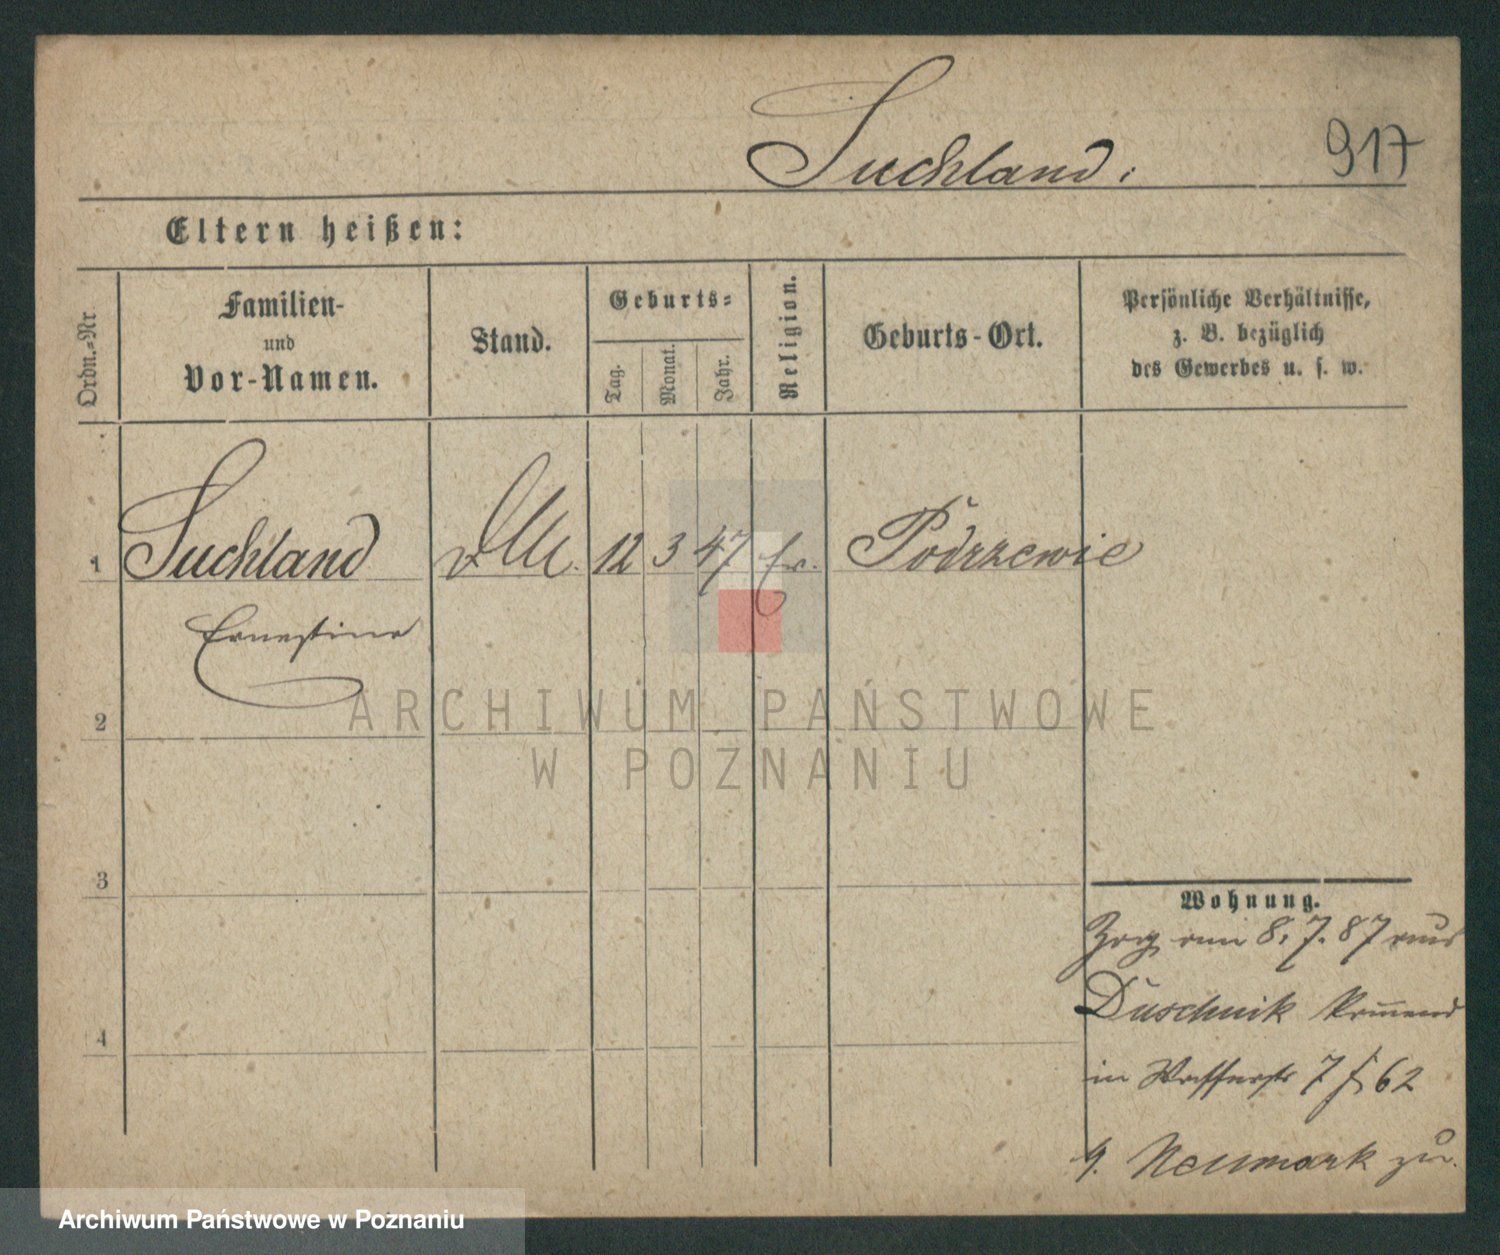 Suchland.
917
Eltern heißen:
Ordn.-Nr
Familien-
und
Vor-Namen.
Stand.
Geburts-
Tag.
Monat.
Jahr.
Religion.
Geburts-Ort.
Persönliche Verhältnisse,
z. B. bezüglich
des Gewerbes u. s. w.
1 Suchland 12 3 47 Ev. Podrzewie
Ernestine
2
3
4
Wohnung.
Zog am 8. 7. 87 aus
Duschnik kommend
in Wasserstr 7 62
Neumark zu.
ARCHIWUM PAŃSTWOWE
W POZNANIU
Archiwum Państwowe w Poznaniu